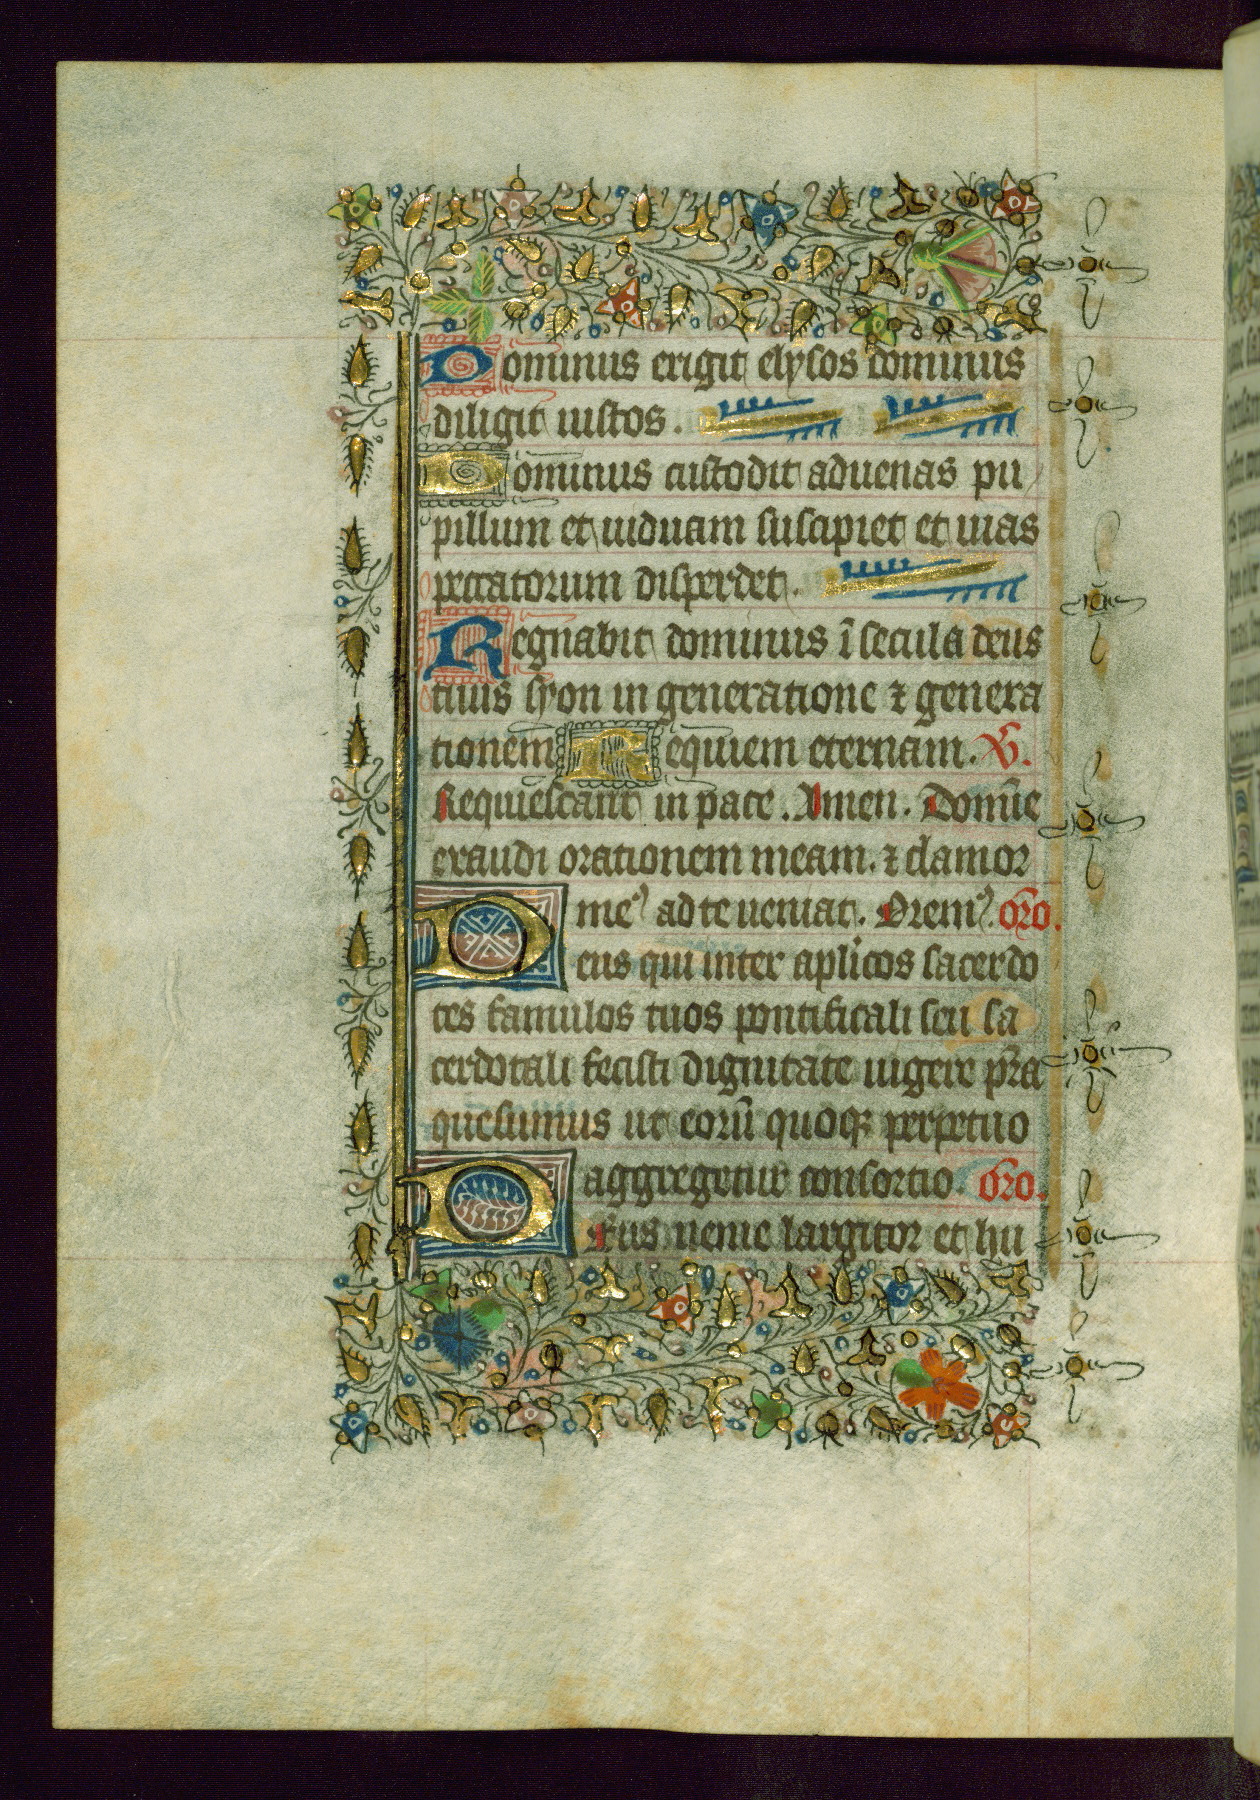 Dominus erigit elysos dominus
diligit iustos.
Dominus custodit aduenas pu
pillum et uiduam suscipiet et uias
peccatorum disperdet.
Regnabit dominus ī secula deus
tuus syon in generatione ⁊ genera
tionem Requiem eternam. V.
Requiescant in pace. Amen. Domīe
exaudi orationem meam. ⁊ clamor
meꝰ ad te ueniat. Oremꝰ. oro.
Deus qui inter aplicos sacerdo
tes famulos tuos pontificali seu sa
cerdotali fecisti dignitate uigere p̄ra
quesumus ut eorū quoqꝫ perpetuo
aggregetur consortio. oro.
Deus uenie largitor et hu